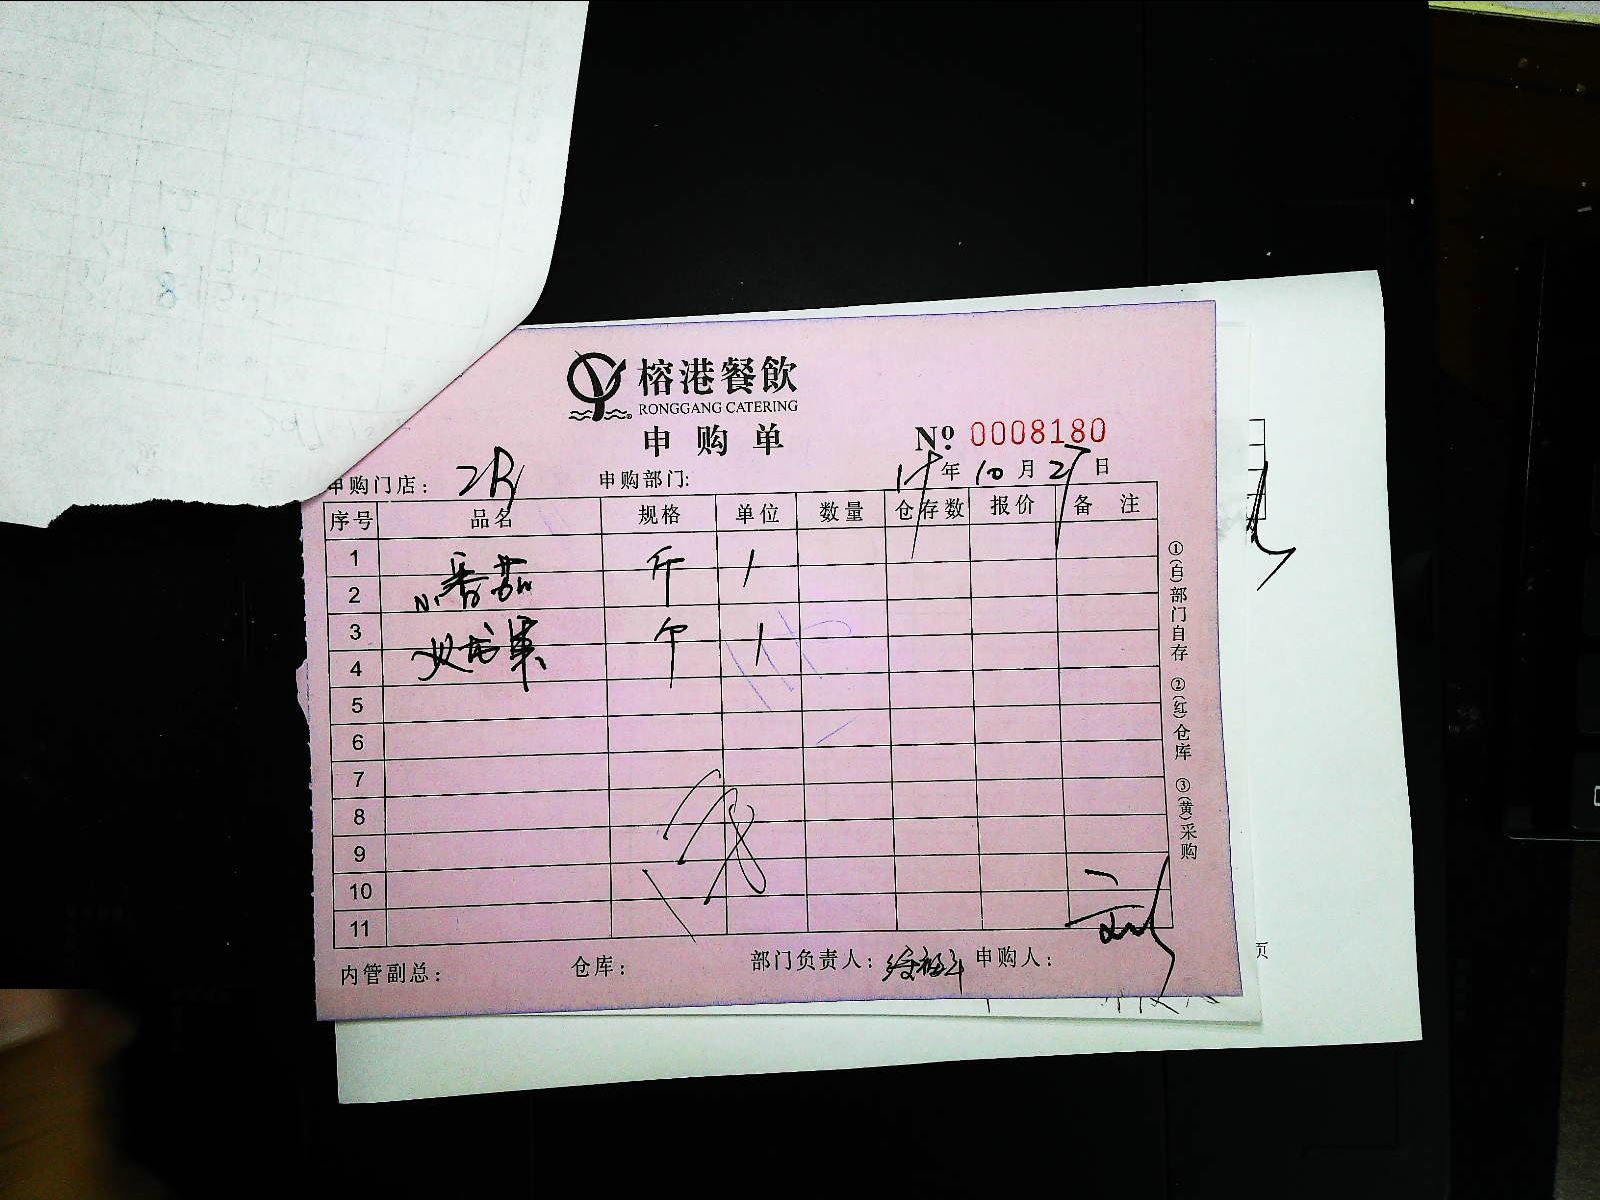 榕港餐飲
RONGGANG CATERING
申购单
No 0008180
申购门店： 申购部门: 年 10 月 27 日
序号 品名 规格 单位 数量 仓存数 报价 备 注
1
2 番茄 斤 1
3
4 火龙果 个 1
5
6
7
8
9
10
11
内管副总： 仓库： 部门负责人： 申购人： 刘
①(白)部门自存 ②(红)仓库 ③(黄)采购
页